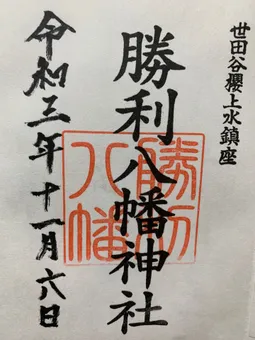 世田谷櫻上水鎮座
勝利八幡神社
勝利八幡
令和三年十一月六日